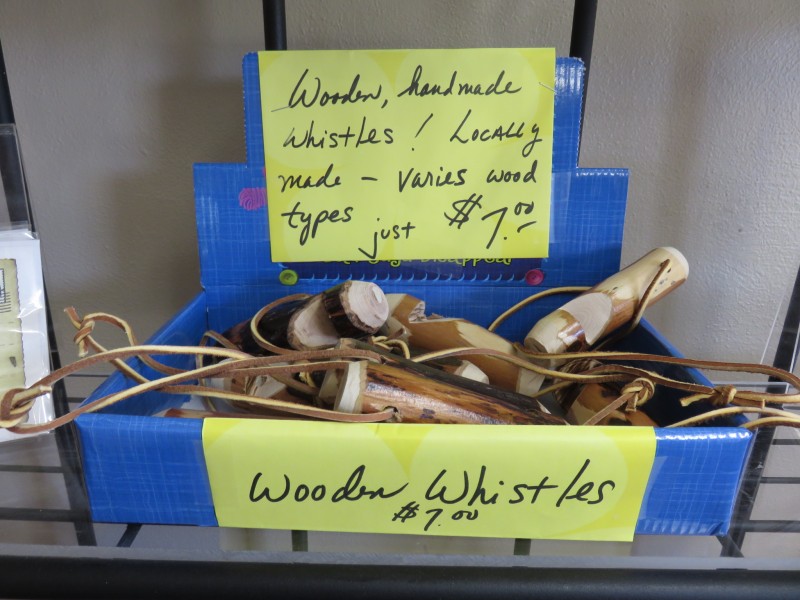 Wooden, handmade
whistles! Locally
made - varies wood
types just $7.00
Disappear
Wooden Whistles
$7.00